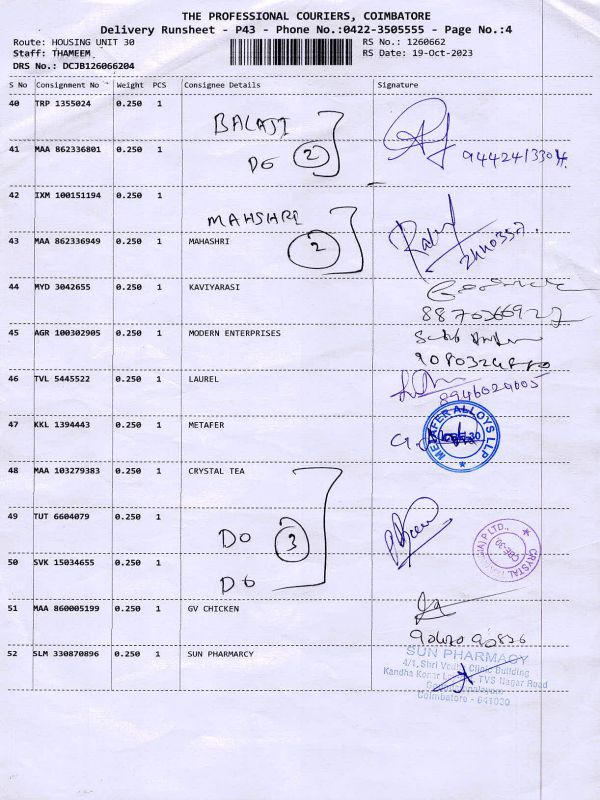 THE PROFESSIONAL COURIERS, COIMBATORE
Delivery Runsheet - P43 - Phone No.:0422-3505555 - Page No.:4
Route: HOUSING UNIT 30 RS No.: 1260662
Staff: THAMEEM RS Date: 19-Oct-2023
DRS No.: DCJB126066204
S No Consignment No Weight PCS Consignee Details Signature
40 TRP 1355024 0.250 1
BALAJI
41 MAA 862336801 0.250 1
DO 2
42 IXM 100151194 0.250 1
MAHSHRI
43 MAA 862336949 0.250 1 MAHASHRI
2
44 MYD 3042655 0.250 1 KAVIYARASI
45 AGR 100302905 0.250 1 MODERN ENTERPRISES
46 TVL 5445522 0.250 1 LAUREL
8946029605
47 KKL 1394443 0.250 1 METAFER
METAFER ALLOYS LLP
48 MAA 103279383 0.250 1 CRYSTAL TEA
49 TUT 6604079 0.250 1
DO 3
CRYSTAL (INDIA) P LTD., CBE-30
50 SVK 15034655 0.250 1
DO
51 MAA 860005199 0.250 1 GV CHICKEN
52 SLM 330870896 0.250 1 SUN PHARMARCY
SUN PHARMACY
4/1, Shri Clinic Building
Kandha Konar TVS Nagar Road
Coimbatore - 641020